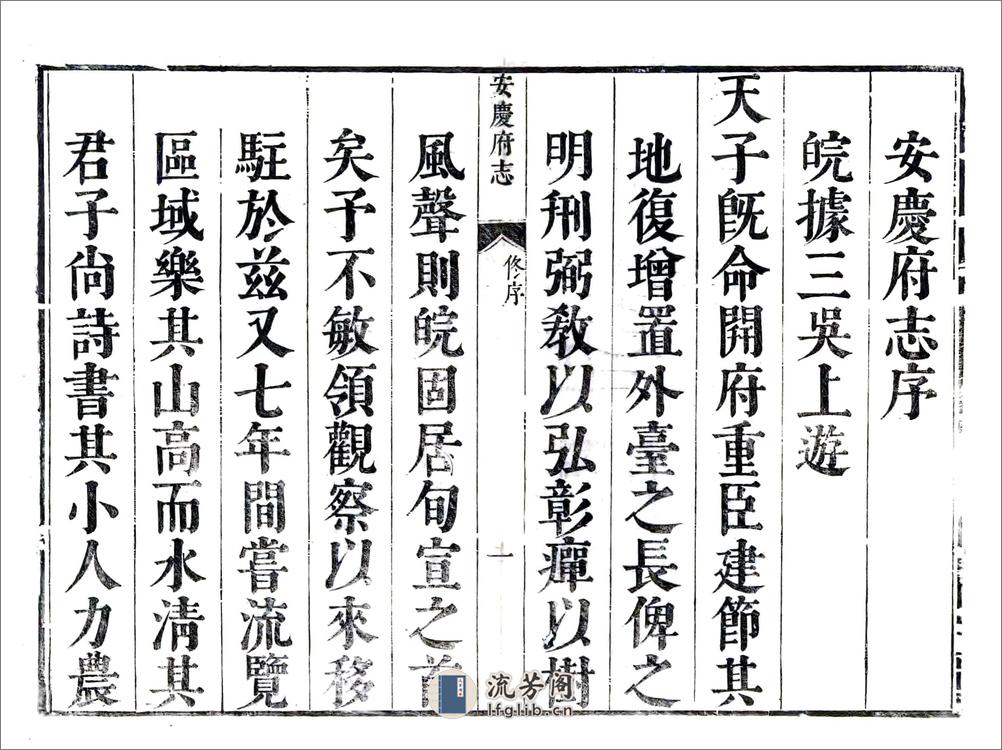 安慶府志序
皖據三吳上遊
天子旣命開府重臣建節其
地復增置外臺之長俾之
明刑弼敎以弘彰癉以樹
安慶府志
修序
一
風聲則皖固居旬宣之首
矣予不敏領觀察以來移
駐於兹又七年間嘗流覽
區域樂其山高而水淸其
君子尙詩書其小人力農
流芳閣
lfglib.cn